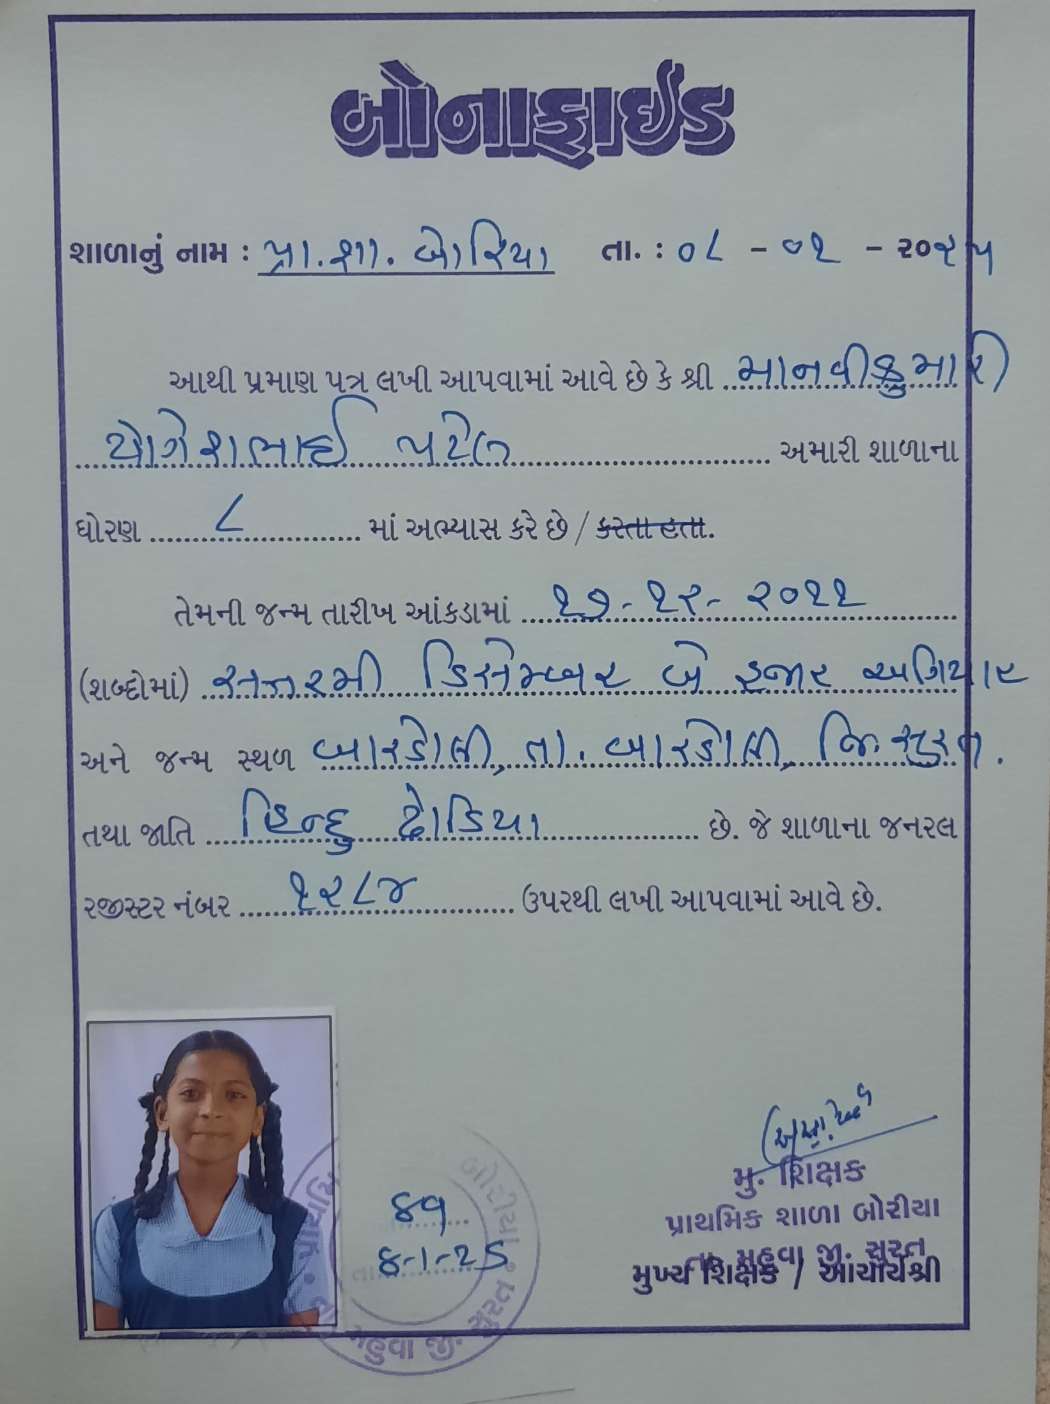 બોનાફાઈડ
શાળાનું નામ : પ્રા.શા. બોરિયા તા. : ૦૮ - ૦૧ - ૨૦૨૫
આથી પ્રમાણ પત્ર લખી આપવામાં આવે છે કે શ્રી માનવીકુમારી
યોગેશભાઈ પટેલ અમારી શાળાના
ધોરણ ૮ માં અભ્યાસ કરે છે / કરતા હતા.
તેમની જન્મ તારીખ આંકડામાં ૧૭-૧૨-૨૦૧૧
(શબ્દોમાં) સત્તરમી ડિસેમ્બર બે હજાર અગિયાર
અને જન્મ સ્થળ બારડોલી, તા. બારડોલી, જિ સુરત.
તથા જાતિ હિન્દુ ઢોડિયા છે. જે શાળાના જનરલ
રજીસ્ટર નંબર ૧૨૮૪ ઉપરથી લખી આપવામાં આવે છે.
મુ. શિક્ષક
પ્રાથમિક શાળા બોરીયા
તા. મહુવા જી. સુરત
મુખ્ય શિક્ષક / આચાર્યશ્રી
બોરીયા
મહુવા જી. સુરત